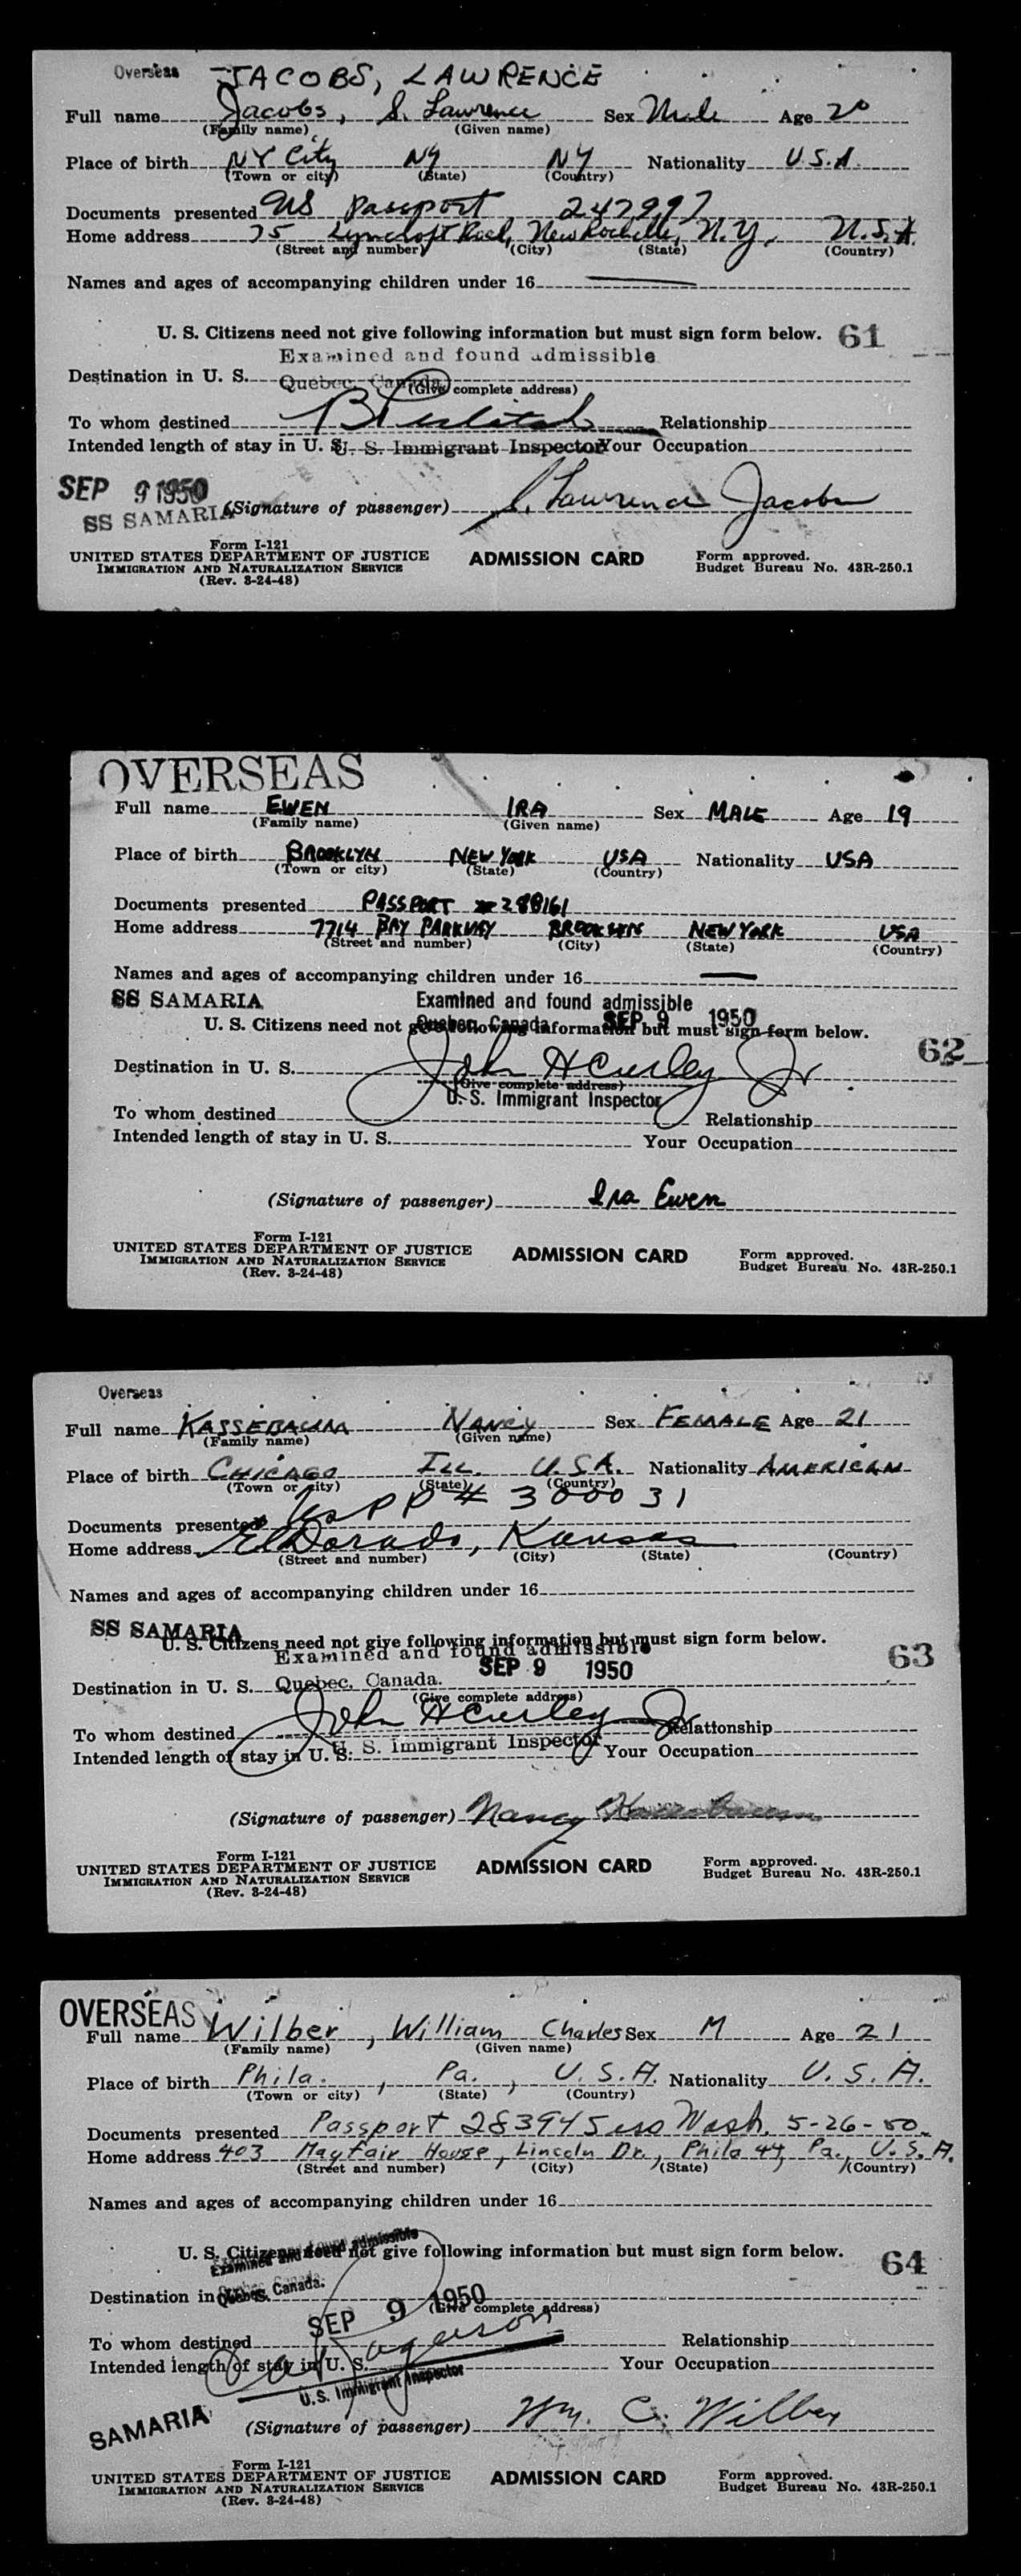 Overseas JACOBS, LAWRENCE
Full name Jacobs, S. Lawrence Sex Male Age 20
(Family name) (Given name)
Place of birth NY City NY NY Nationality U.S.A.
(Town or city) (State) (Country)
Documents presented US Passport 247997
Home address 75 Lyncroft Road, New Rochelle, N.Y. U.S.A.
(Street and number) (City) (State) (Country)
Names and ages of accompanying children under 16
U. S. Citizens need not give following information but must sign form below. 61
Examined and found admissible
Destination in U. S. Quebec, Canada
(Give complete address)
To whom destined Relationship
Intended length of stay in U. S. U. S. Immigrant Inspector Your Occupation
SEP 9 1950
SS SAMARIA (Signature of passenger) S. Lawrence Jacobs
Form I-121
UNITED STATES DEPARTMENT OF JUSTICE ADMISSION CARD Form approved.
IMMIGRATION AND NATURALIZATION SERVICE Budget Bureau No. 43R-250.1
(Rev. 3-24-48)
OVERSEAS
Full name EWEN IRA Sex MALE Age 19
(Family name) (Given name)
Place of birth BROOKLYN NEW YORK USA Nationality USA
(Town or city) (State) (Country)
Documents presented PASSPORT # 288161
Home address 7714 BAY PARKWAY BROOKLYN NEW YORK USA
(Street and number) (City) (State) (Country)
Names and ages of accompanying children under 16
SS SAMARIA Examined and found admissible
Quebec, Canada SEP 9 1950
U. S. Citizens need not give following information but must sign form below.
62
Destination in U. S. John H Curley Jr
(Give complete address)
U. S. Immigrant Inspector
To whom destined Relationship
Intended length of stay in U. S. Your Occupation
(Signature of passenger) Ira Ewen
Form I-121
UNITED STATES DEPARTMENT OF JUSTICE ADMISSION CARD Form approved.
IMMIGRATION AND NATURALIZATION SERVICE Budget Bureau No. 43R-250.1
(Rev. 3-24-48)
Overseas
Full name KASSEBAUM NANCY Sex FEMALE Age 21
(Family name) (Given name)
Place of birth CHICAGO ILL. U.S.A. Nationality AMERICAN
(Town or city) (State) (Country)
Documents presented US PP # 300031
Home address ElDorado, Kansas
(Street and number) (City) (State) (Country)
Names and ages of accompanying children under 16
SS SAMARIA
U. S. Citizens need not give following information but must sign form below.
Examined and found admissible 63
SEP 9 1950
Destination in U. S. Quebec, Canada.
(Give complete address)
John H Curley Jr
To whom destined Relationship
Intended length of stay in U. S. U. S. Immigrant Inspector Your Occupation
(Signature of passenger) Nancy Kassebaum
Form I-121
UNITED STATES DEPARTMENT OF JUSTICE ADMISSION CARD Form approved.
IMMIGRATION AND NATURALIZATION SERVICE Budget Bureau No. 43R-250.1
(Rev. 3-24-48)
OVERSEAS
Full name Wilber, William Charles Sex M Age 21
(Family name) (Given name)
Place of birth Phila., Pa., U.S.A. Nationality U.S.A.
(Town or city) (State) (Country)
Documents presented Passport 283945 iss Wash. 5-26-50
Home address 403 Mayfair House, Lincoln Dr., Phila 44, Pa., U.S.A.
(Street and number) (City) (State) (Country)
Names and ages of accompanying children under 16
Examined and found admissible
U. S. Citizens need not give following information but must sign form below.
64
Destination in U. S. Quebec, Canada.
SEP 9 1950
(Give complete address)
To whom destined Relationship
Intended length of stay in U. S. Your Occupation
U.S. Immigrant Inspector
SAMARIA (Signature of passenger) Wm. C. Wilber
Form I-121
UNITED STATES DEPARTMENT OF JUSTICE ADMISSION CARD Form approved.
IMMIGRATION AND NATURALIZATION SERVICE Budget Bureau No. 43R-250.1
(Rev. 3-24-48)